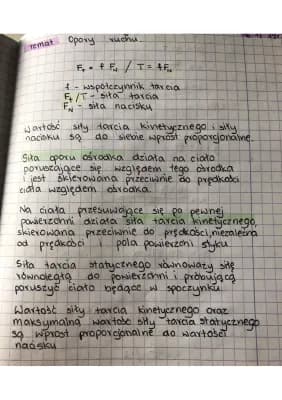 Temat Opory ruchu
Ft = f FN / T = f FN
f - współczynnik tarcia
Ft/T - siła tarcia
FN - siła nacisku
Wartość siły tarcia kinetycznego i siły
nacisku są do siebie wprost proporcjonalne.
Siła oporu ośrodka działa na ciało
poruszające się względem tego ośrodka
i jest skierowana przeciwnie do prędkości
ciała względem ośrodka.
Na ciała przesuwające się po pewnej
powierzchni działa siła tarcia kinetycznego,
skierowana przeciwnie do prędkości, niezależna
od prędkości i pola powierzchni styku
Siła tarcia statycznego równoważy siłę
równoległą do powierzchni i próbującą
poruszyć ciało będące w spoczynku.
Wartość siły tarcia kinetycznego oraz
maksymalna wartość siły tarcia statycznego
są wprost proporcjonalne do wartości
nacisku